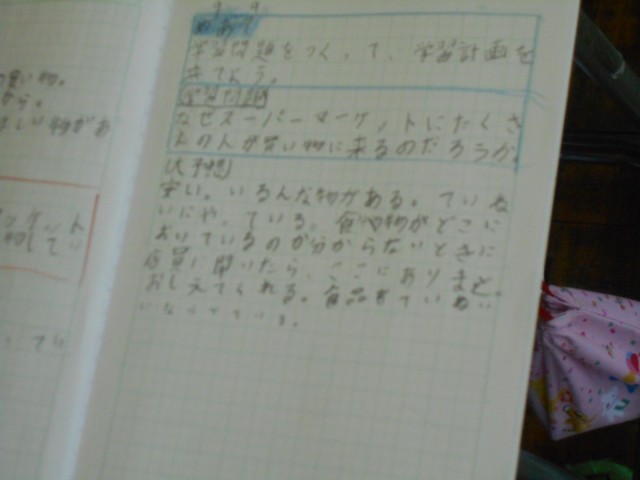 の買い物。
から。
ほしい物があ
ケット
9 9
めあて
学習問題をつくって、学習計画を
立てよう。
学習問題
なぜスーパーマーケットにたくさ
んの人が買い物に来るのだろうか。
予想
安い。いろんな物がある。ていね
いにやっている。食べ物がどこに
おいているのか分からないときに
店員に聞いたら、ここにありますと。
おしえてくれる。食品をていねい
にならべている。